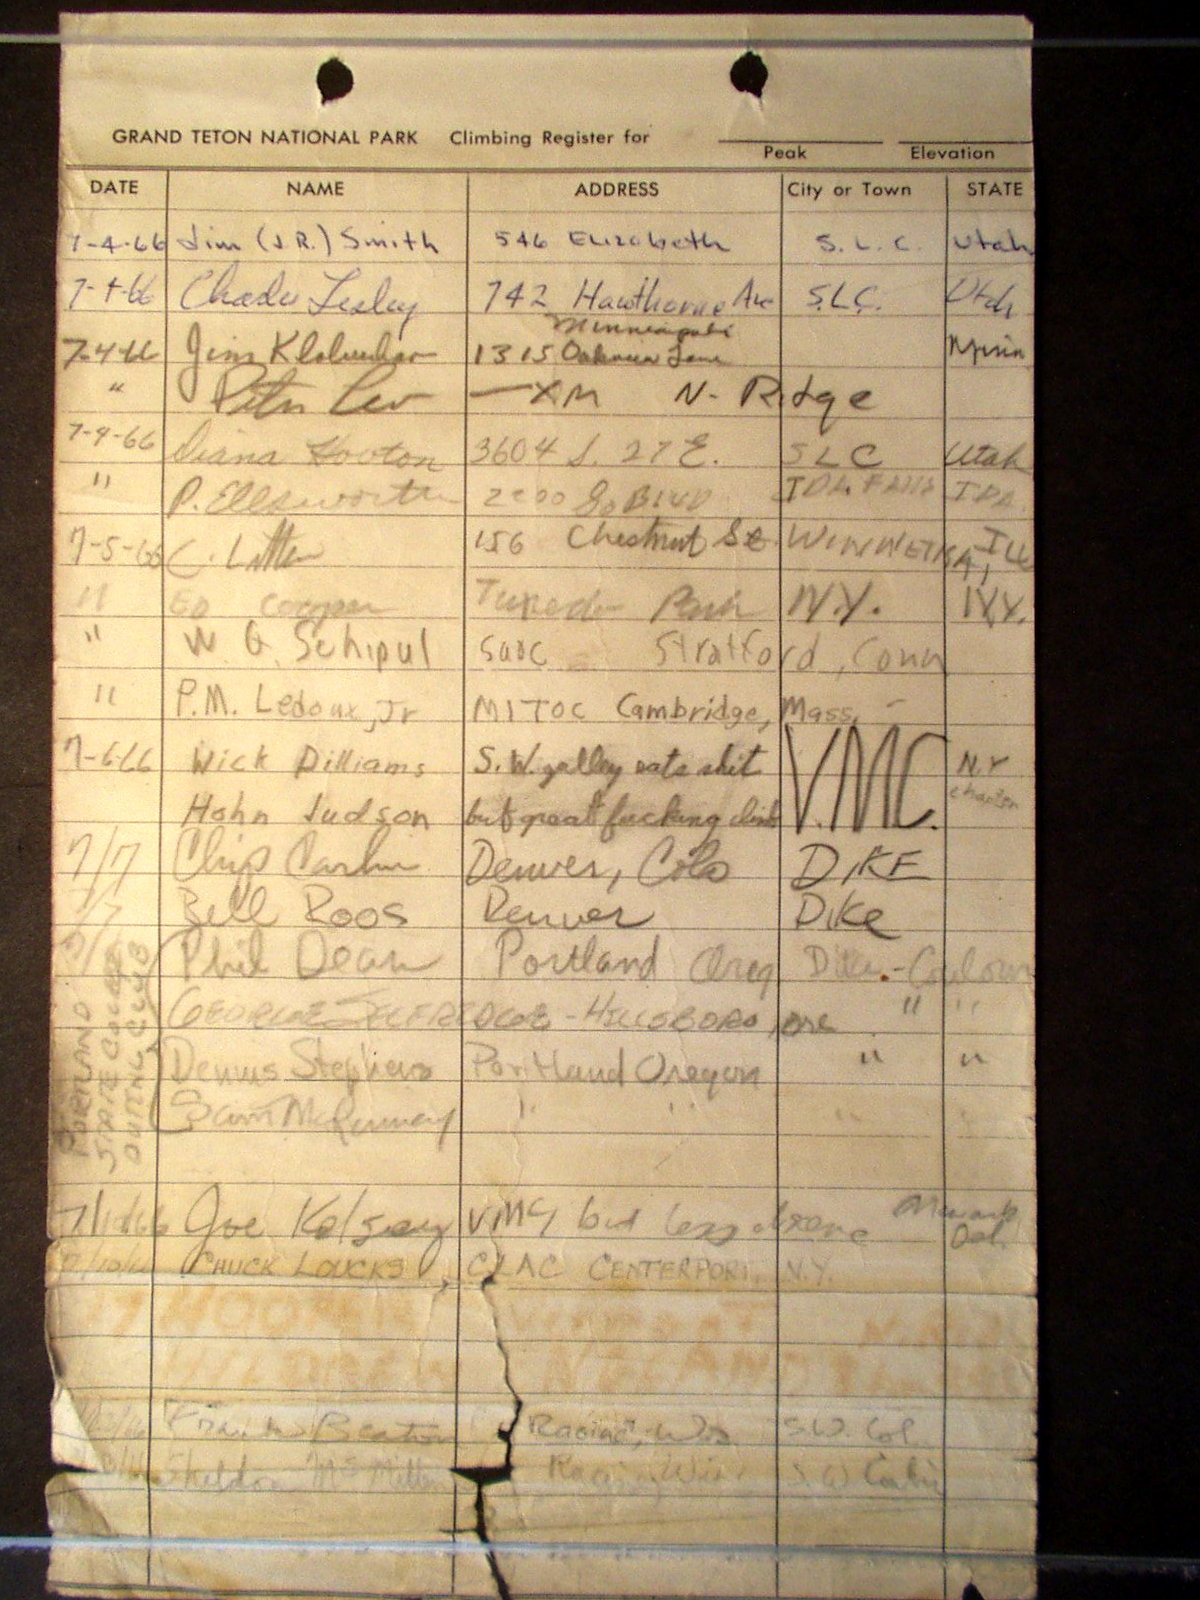 GRAND TETON NATIONAL PARK Climbing Register for
Peak Elevation
DATE NAME ADDRESS City or Town STATE
7-4-66 Jim (J.R.) Smith 546 Elizabeth S.L.C. Utah
7-4-66 Charles Lesley 742 Hawthorne Ave S.L.C. Utah
Minneapolis
7-4-66 Jim Klobuchar 1315 Oakview Lane Minn
" Peter Lev — XM N. Ridge
7-4-66 Diana 3604 S. 27 E. SLC Utah
" P. Ellsworth 2200 So BLVD IDA. FALLS IDA.
7-5-66 C. 156 Chestnut St. WINNETKA, ILL
" ED Cooper Tuxedo Park N.Y. N.Y.
" W G. Schipul Stratford, Conn
" P.M. Ledoux, Jr MITOC Cambridge, Mass. -
7-6-66 Wick Dilliams S.W. galley eats shit V.MC. N.Y
Hohn Judson but great fucking climb
7/7 Chip Denver, Colo DIKE
7/7 Bill Roos Denver Dike
7/7 Phil Dean Portland Oreg -Couloir
GEORGE SELFRIDGE - HILLSBORO, ORE " "
Dennis Stephens Portland Oregon " "
Sam " " " "
PORTLAND
STATE COLLEGE
OUTING CLUB
Joe Kelsey VMC, but less obscene Newark Del.
7/10/66 CHUCK LOUCKS, CLAC CENTERPORT, N.Y.
Beaton Racine, Wis. S.W. Col.
Sheldon Racine, Wis. S.W.